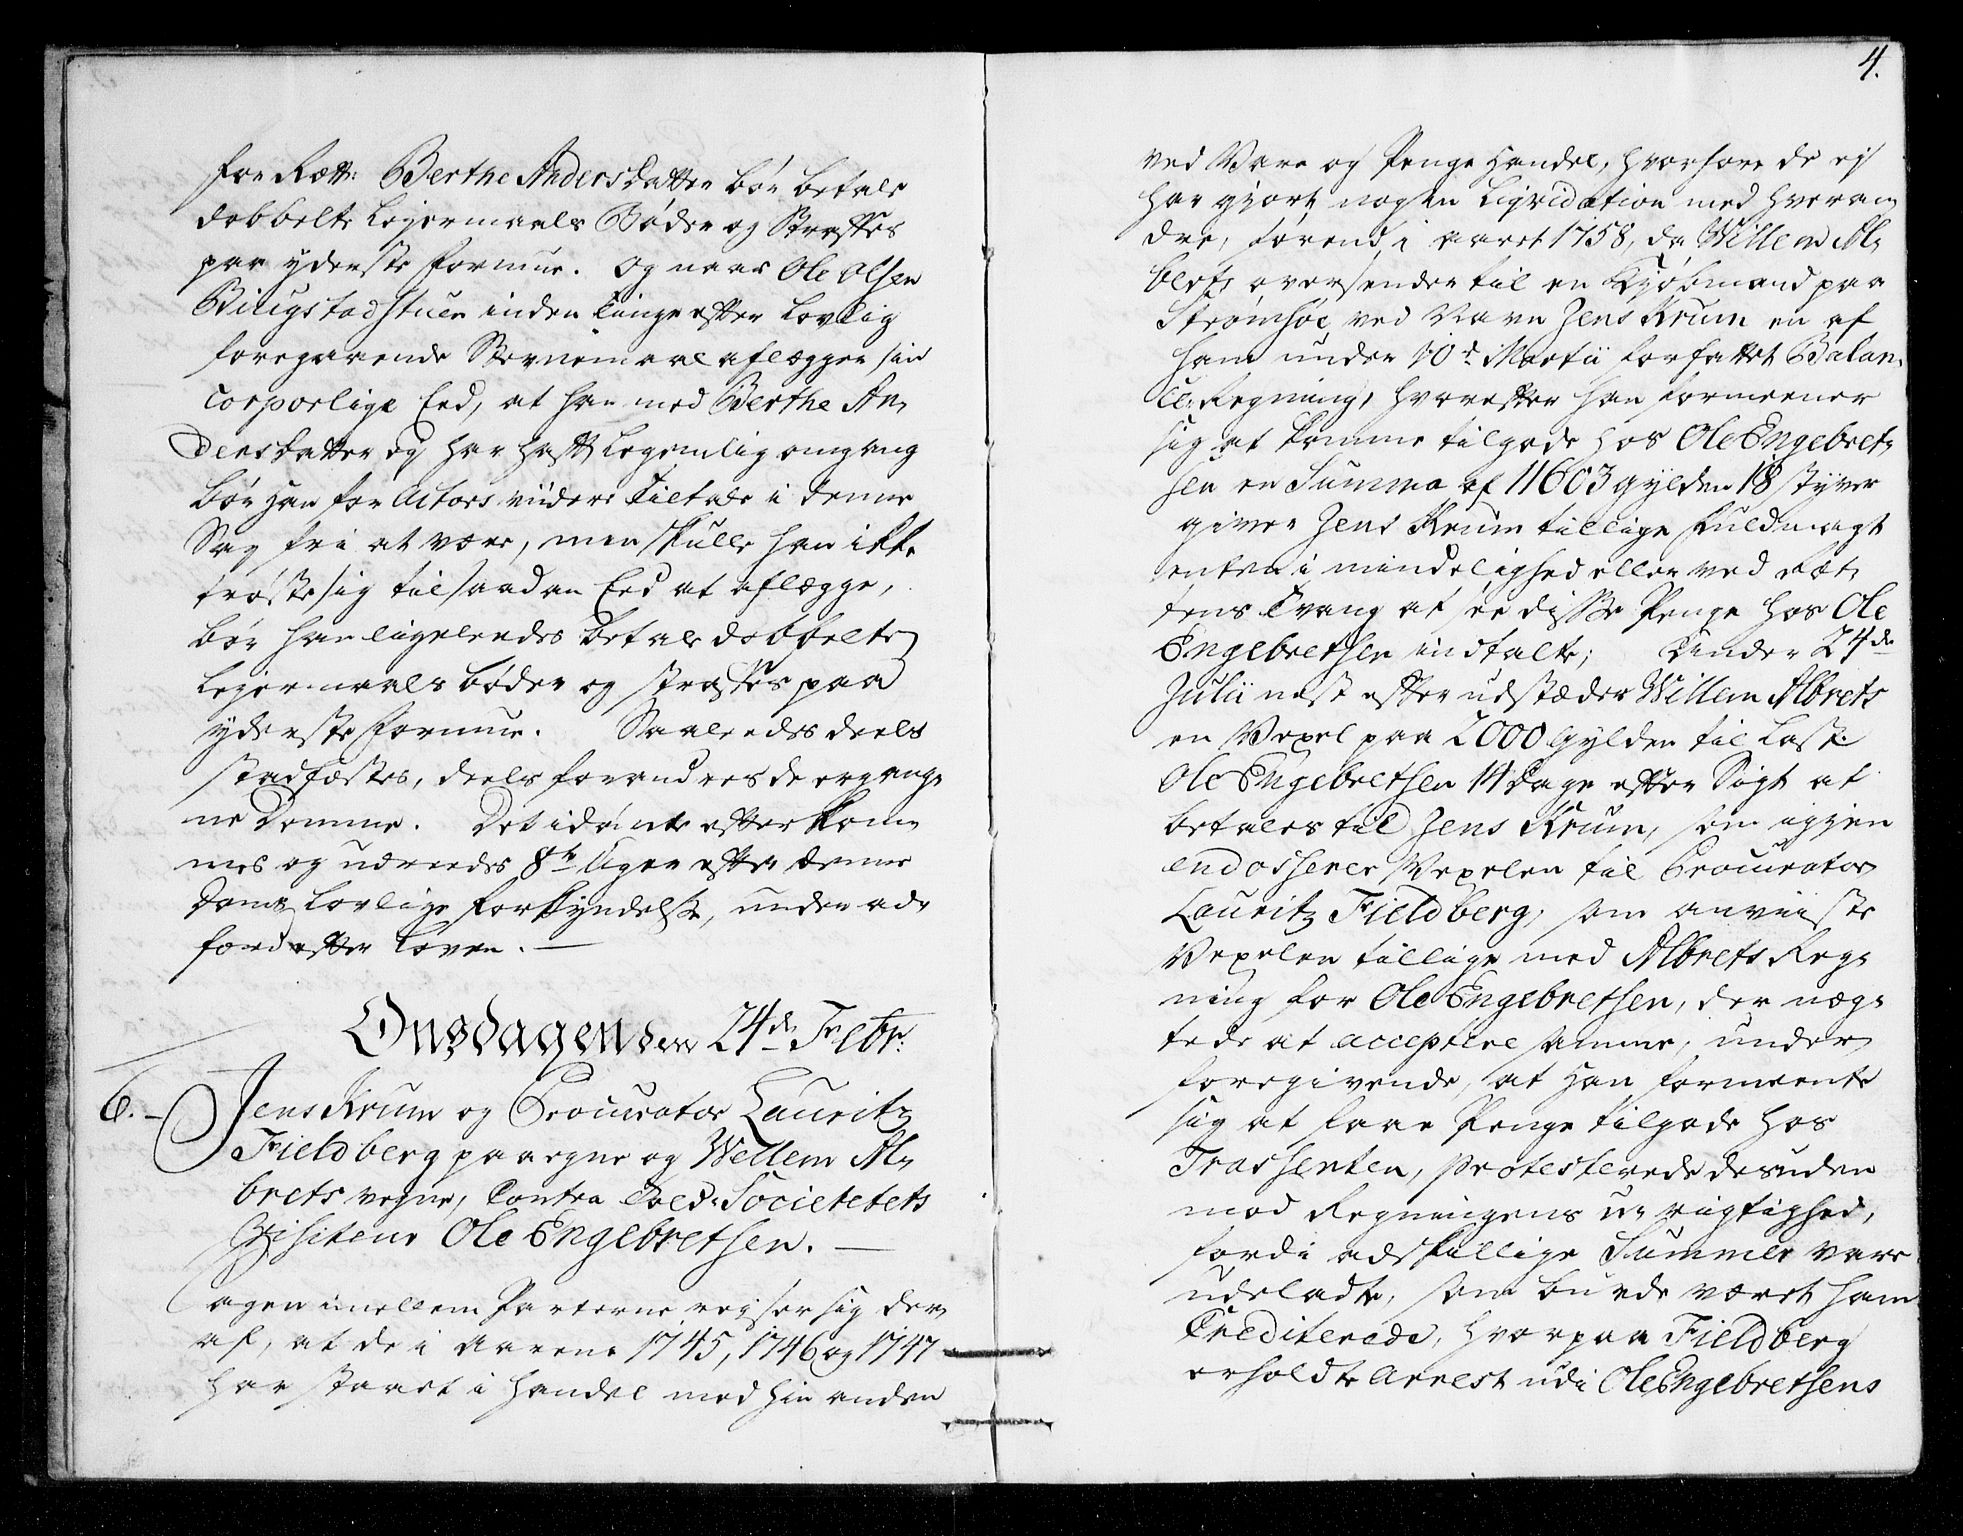 for Rætt: Berthe Andersdatter bør betale
dobbelte Lejermaals Bøder og Straffes
paa yderste formue. Og naar Ole Olsen
Biugstadstuen inden Tinge efter Lovlig
foregaaende Stevnemaal aflægger sin
Corporlige Eed, at han med Berthe An,
dersdatter ej har haft Legemlig omgang
bør han for Actors viidere Tiltale i denne
Sag frj at være, men skulle han ikke
trøste sig til saadan Eed at aflægge,
bør han ligeledes betale dobbelte
Lejermaals bøder og straffes paa
yderste Formue. Saaledes deels
stadfæstes, deels forandres de ergang,
ne Domme. Det idømte efterkom,
mes og udreedes 8te Uger efter denne
Doms Lovlige Forkyndelse, under ad,
færd efter Loven. —
Onsdagen den 24de Febr:
6. — Jens Krum og Procurator Lauritz
Fieldberg paa egne og Wellem Al,
brets vegne, Contra Told-Societetets
Visiteur Ole Engebretsen. —
Sagen imellem Parterne rejser sig der,
af, at de i Aarene 1745, 1746 og 1747
har staaet i Handel med hin anden
4.
ved Vare og Penge Handel, hvorfore de ej
har gjort nogen Liqvidation med hveran,
dre, førend i aaret 1758, da Willem Al,
brets oversender til en Kjøbmand paa
Strømsøe ved Navn Jens Krum en af
ham under 10d Martii forfattet Balan,
ce-Regning, hvorefter han formeener
sig at komme tilgode hos Ole Engebret,
sen en Summa af 11603 gylden 18 styver
giver Jens Krum tillige Fuldmagt
enten i mindelighed eller ved Ræt,
tens Tvang at see disse Penge hos Ole
Engebretsen indtalte; Under 24de
Julii nest efter udstæder Willem Albrets
en Vexel paa 2000 Gylden til Last
Ole Engebretsen 14 Dage efter Sigt at
betales til Jens Krum, som igjen
endosserer Vexelen til Procurator
Lauritz Fieldberg, som anviiste
Vexelen tillige med Albrets Reg,
ning for Ole Engebretsen, der næg,
tede at acceptere samme, under
foregivende, at han formeente
sig at have Penge tilgode hos
Trassenten, protesterede desuden
mod Regningens u-rigtighed,
fordi adskillige Summer vare
udeladte, som burde været ham
Crediterede, hvorpaa Fieldberg
erholdte Arrest udi Ole Engebretsens